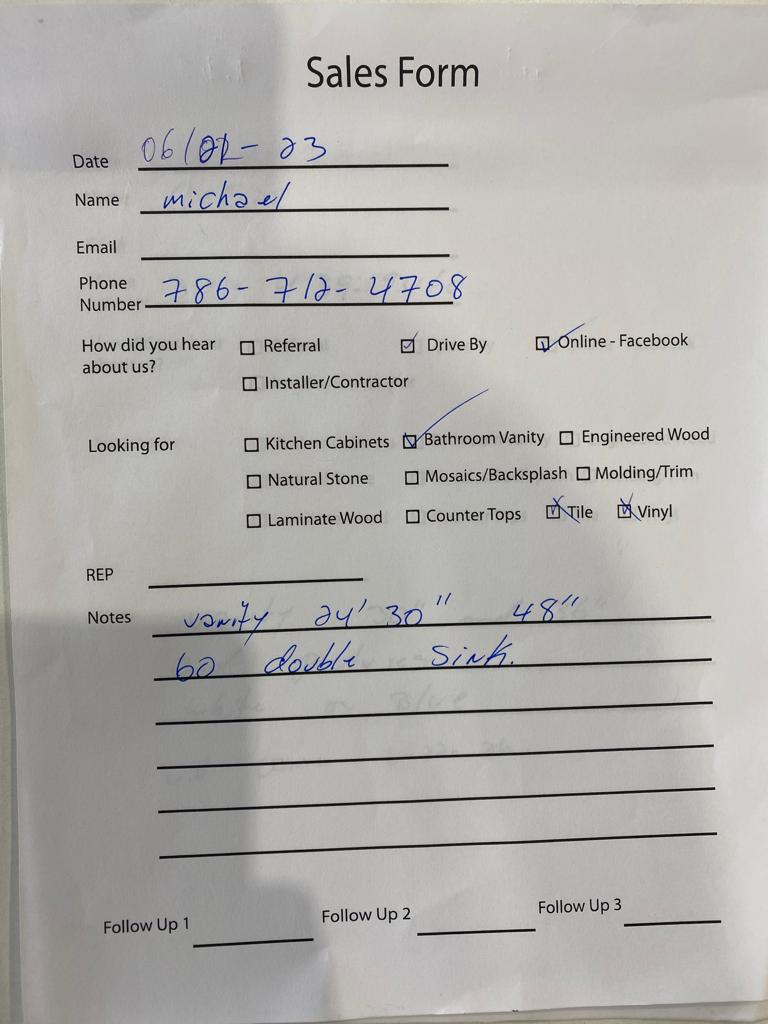 Sales Form
Date 06/ - 23
Name michael
Email
Phone
Number 786-712-4708
How did you hear
about us?
☐ Referral ☑ Drive By ☑ Online - Facebook
☐ Installer/Contractor
Looking for ☐ Kitchen Cabinets ☑ Bathroom Vanity ☐ Engineered Wood
☐ Natural Stone ☐ Mosaics/Backsplash ☐ Molding/Trim
☐ Laminate Wood ☐ Counter Tops ☒ Tile ☒ Vinyl
REP
Notes vanity 24' 30" 48"
60 double Sink.
Follow Up 1 Follow Up 2 Follow Up 3